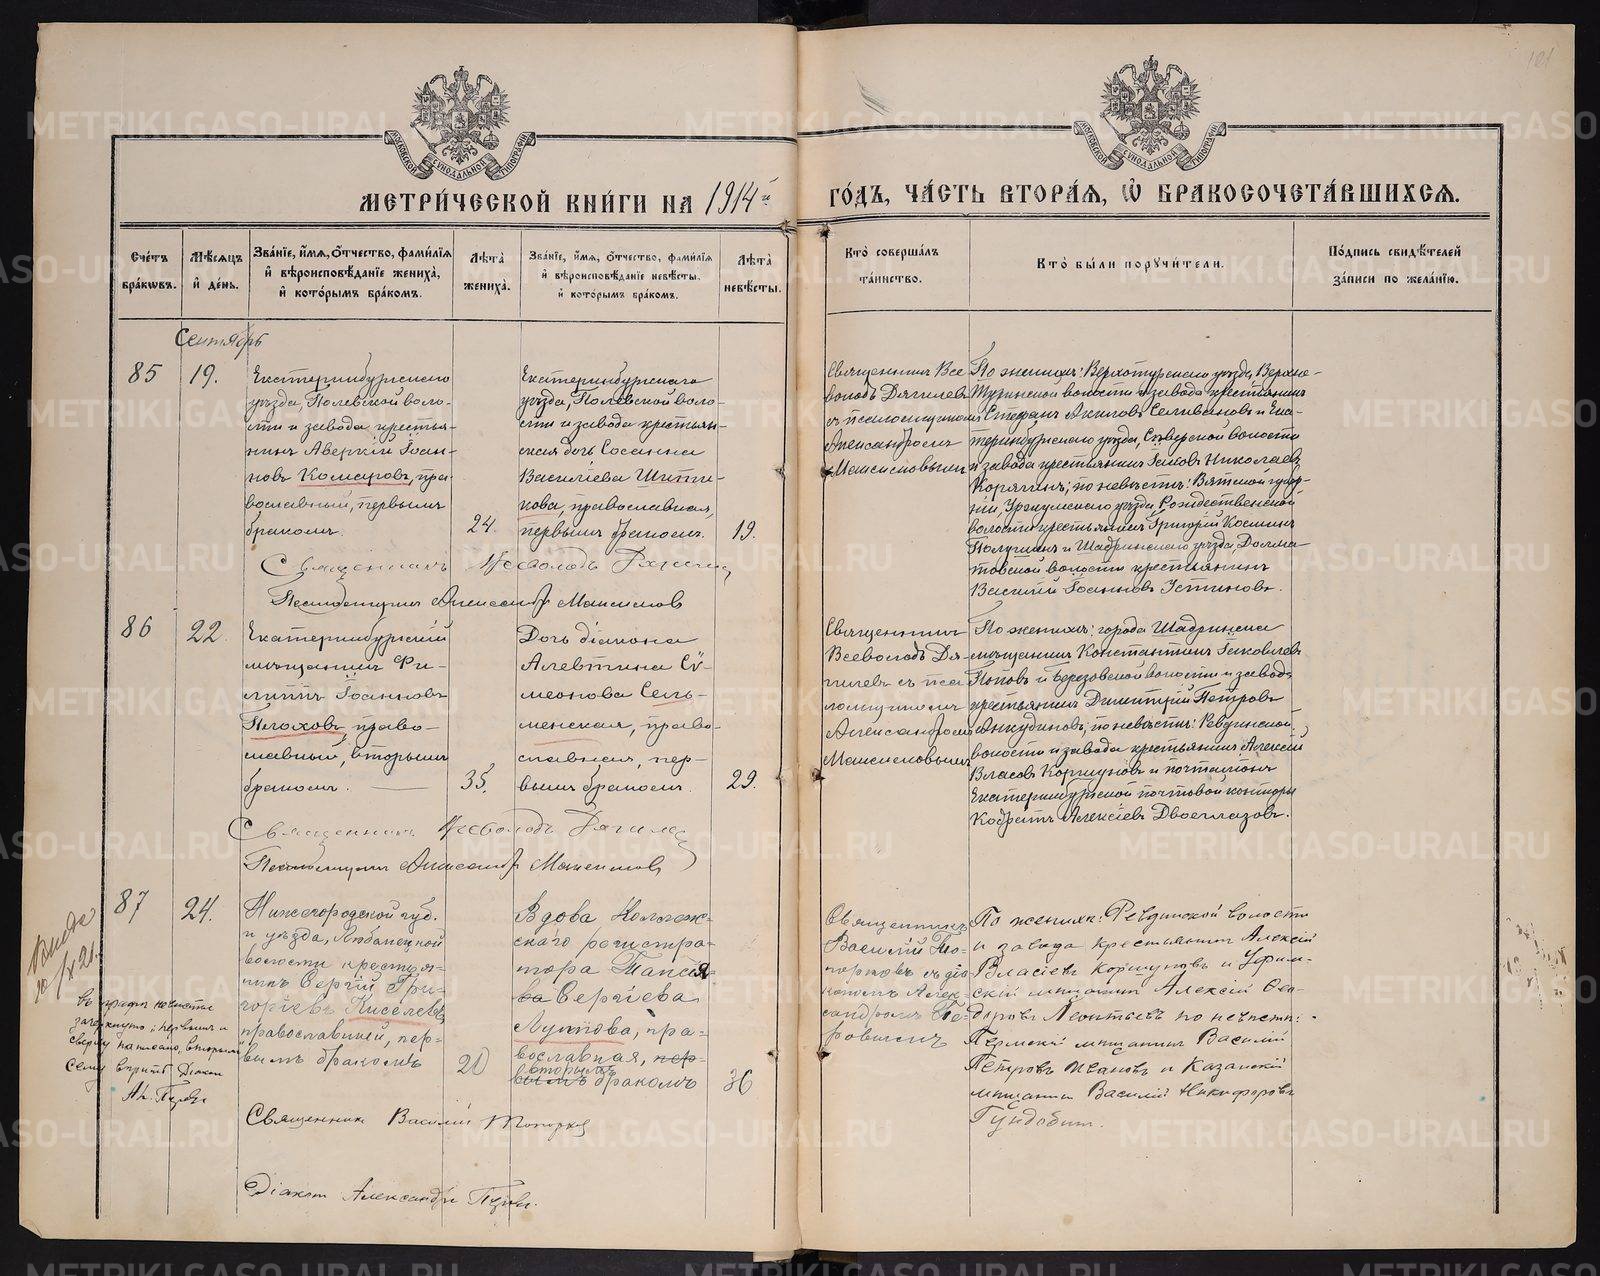 101
МОСКОВСКОЙ СѴНОДАЛЬНОЙ ТИПОГРАФІИ
МОСКОВСКОЙ СѴНОДАЛЬНОЙ ТИПОГРАФІИ
МЕТРИ́ЧЕСКОЙ КНИ́ГИ НА 1914й ГО́ДЪ, ЧА́СТЬ ВТОРА́Ѧ, Ѽ БРАКОСОЧЕТА́ВШИХСѦ.
Сче́тъ бра́кѡвъ.
Мѣ́сѧцъ и҆ де́нь.
Зва́нїе, и҆́мѧ, ѻ҆́тчество, фами́лїѧ и҆ вѣроисповѣ́данїе жениха̀, и҆ кото́рымъ бра́комъ.
Лѣ́та жениха̀.
Зва́нїе, и҆́мѧ, ѻ҆́тчество, фами́лїѧ и҆ вѣроисповѣ́данїе невѣ́сты, и҆ кото́рымъ бра́комъ.
Лѣ́та невѣ́сты.
Кто̀ соверша́лъ та́инство.
Кто̀ бы́ли поручи́тели.
По́дпись свидѣ́телей за́писи по жела́нїю.
Сентябрь
85
19.
Екатеринбургскаго
уѣзда, Полевской воло-
сти и завода крестья-
нинъ Аверкій Іоан-
новъ Комаровъ, пра-
вославный, первымъ
бракомъ.
24.
Екатеринбургскаго
уѣзда, Полевской воло-
сти и завода крестьян-
ская дочь Сосанна
Василіева Шипи-
кова, православная,
первымъ бракомъ.
19.
Священникъ Все-
володъ Дягилевъ
съ псаломщикомъ
Александромъ
Максимовымъ
По женихѣ: Верхотурскаго уѣзда, Верхне-
Туринской волости и завода крестьянинъ
Стефанъ Акиловъ Селивановъ и Ека-
теринбургскаго уѣзда, Сысертской волости
и завода крестьянинъ Іаковъ Николаевъ
Корягинъ; по невѣстѣ: Вятской губер-
ніи, Уржумскаго уѣзда, Рождественской
волости крестьянинъ Григорій Косминъ
Полушинъ и Шадринскаго уѣзда, Долма-
товской волости крестьянинъ
Василій Іоанновъ Устиновъ.
Священникъ Всеволодъ Дягилев
Псаломщикъ Александръ Максимовъ
86
22.
Екатеринбургскій
мѣщанинъ Фи-
липпъ Іоанновъ
Плоховъ, право-
славный, вторымъ
бракомъ.
35.
Дочь діакона
Алевтина Си-
меонова Сель-
менская, право-
славная, пер-
вымъ бракомъ.
29.
Священникъ
Всеволодъ Дя-
гилевъ съ пса-
ломщикомъ
Александромъ
Максимовымъ
По женихѣ: города Шадринска
мѣщанинъ Константинъ Іаковлевъ
Поповъ и Березовской волости и завода
крестьянинъ Димитрій Петровъ
Анкудиновъ; по невѣстѣ: Ревдинской
волости и завода крестьянинъ Алексій
Власовъ Коршуновъ и почтальонъ
Екатеринбургской почтовой конторы
Кодратъ Алексіевъ Двоеглазовъ.
Священникъ Всеволодъ Дягилев
Псаломщикъ Александръ Максимовъ
87
24.
Нижегородской губ.
и уѣзда,
волости крестья-
нинъ Сергій Гри-
горіевъ Киселевъ,
православный, пер-
вымъ бракомъ
20
Вдова Коллеж-
скаго регистра-
тора Таисія
Сергіева
Лумпова, пра-
вославная, пер-
вторымъ
вымъ бракомъ
36
Священникъ
Василій То-
порковъ съ діа-
кономъ Алек-
сандромъ Пе-
ровымъ
По женихѣ: Ревдинской волости
и завода крестьянинъ Алексій
Власіевъ Коршуновъ и Уфим-
скій мѣщанинъ Алексій Ѳео-
доровъ Леонтьевъ по невѣстѣ:
Пермскій мѣщанинъ Василій
Петровъ Ивановъ и Казанскій
мѣщанинъ Василій Никифоровъ
Гундобинъ.
въ графѣ невѣсты
зачеркнуто: первымъ и
сверху написано, вторымъ
Сему вѣрить Діаконъ
Священникъ Василій Топорков
Діаконъ Александръ
METRIKI.GASO-URAL.RU